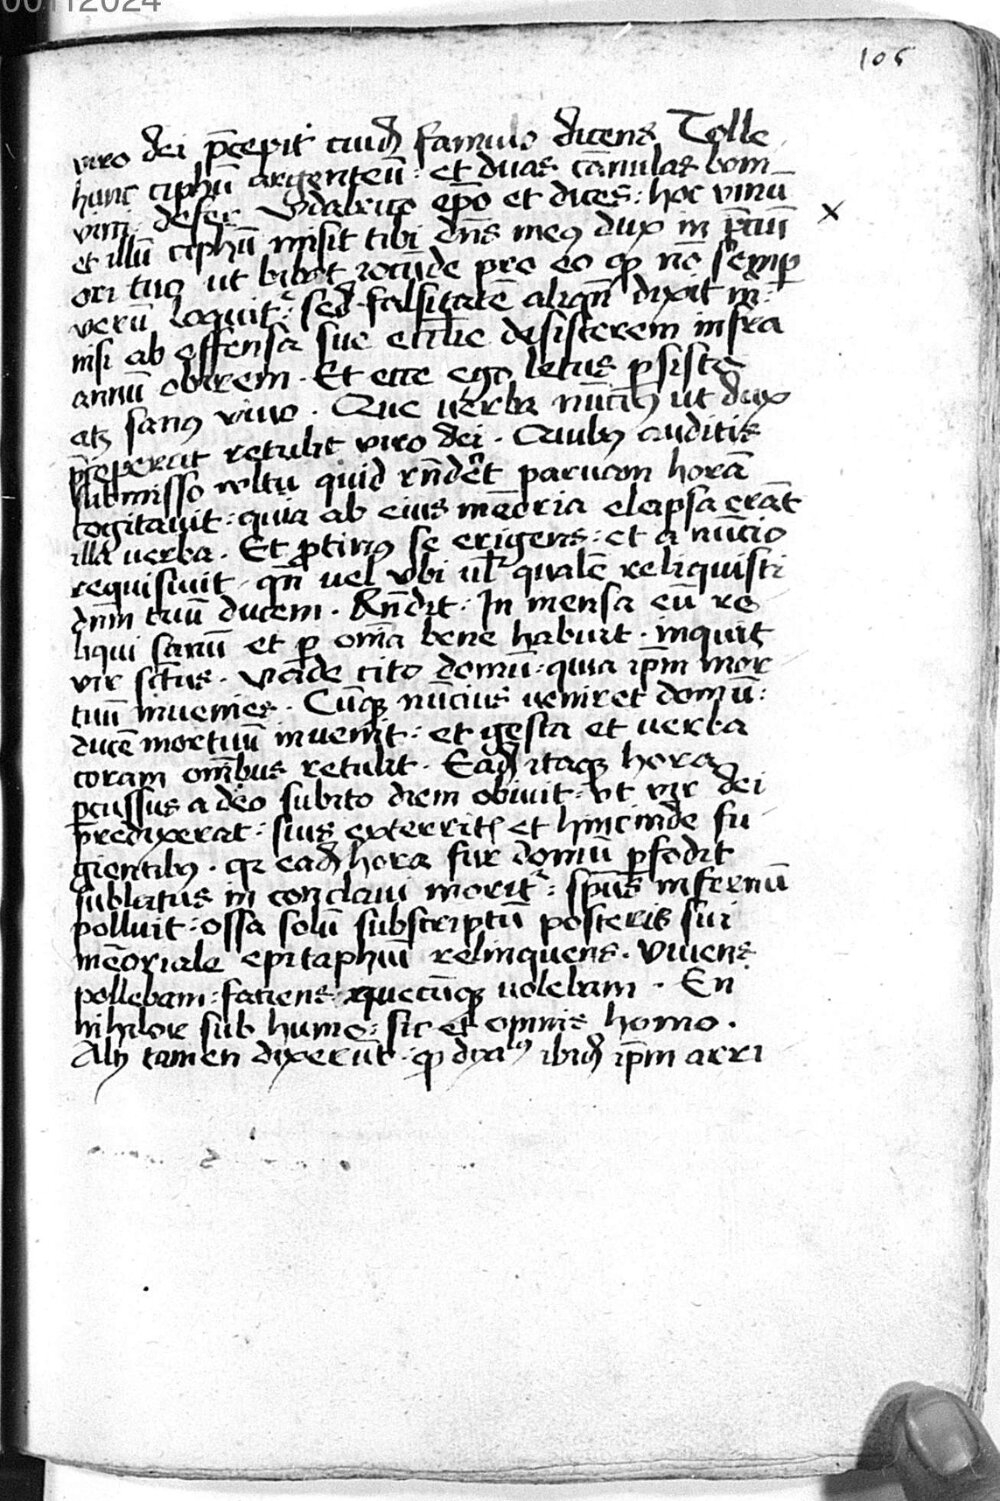 00112024
106
viro dei p̄cepit cuidā famulo dicens Tolle
hunc ciphū argenteū : et duas cānulas bom
vini defer Vdalrico ep̄o et dices : hoc vinū
et illū ciphū misit tibi dn̄s meꝰ dux in p̄ciū
x
ori tuo ut bibat iocūde pro eo qꝫ nō semꝑ
verū loquit᷑ : sed falsitatē aliqn̄ dixit m̄ :
nisi ab offensa sue eccl̄ie desisterem infra
annū obirem . Et ecce ego letus ꝑsisto
atꝫ sanꝰ vivo . Que verba nūciꝰ ut dux
p̄ceperat retulit viro dei . Quibꝰ auditis
submisso vultu quid rn̄deret parvam horā
cogitavit : quia ab eius memoria elapsa erāt
illa verba . Et ꝓtinꝰ se erigens : et a nūcio
requisivit . qn̄ vel ubi vl̓ qualē reliquisti
dn̄m tuū ducem . Rn̄dit : In mensa eū re
liqui sanū et ꝑ om̄ia bene habuit . inquit
vir sctūs . Vade cito domū : quia ip̄m mor
tuū invenies . Cūqꝫ nūcius veniret domū :
ducē mortuū invenit : et gesta et verba
coram om̄ibus retulit . Eadē itaqꝫ hora
ꝑcussus a deo subito diem obiuit : ut vir dei
predixerat : suis exterritis et hincinde fu
gientibꝰ . qi eadē hora fur domū ꝑfodit
sublatus in conclavi morit᷑ : sp̄us infernū
polluit : ossa solū subscriptū posteris sui
memoriale epitaphiū relinquens . Vivens
pollebam : faciens quecūqꝫ volebam . En
nihilor sub humo : sic et omnis homo .
Alij tamen dixerūt . qꝫ dyaꝰ ibidē ip̄m arri